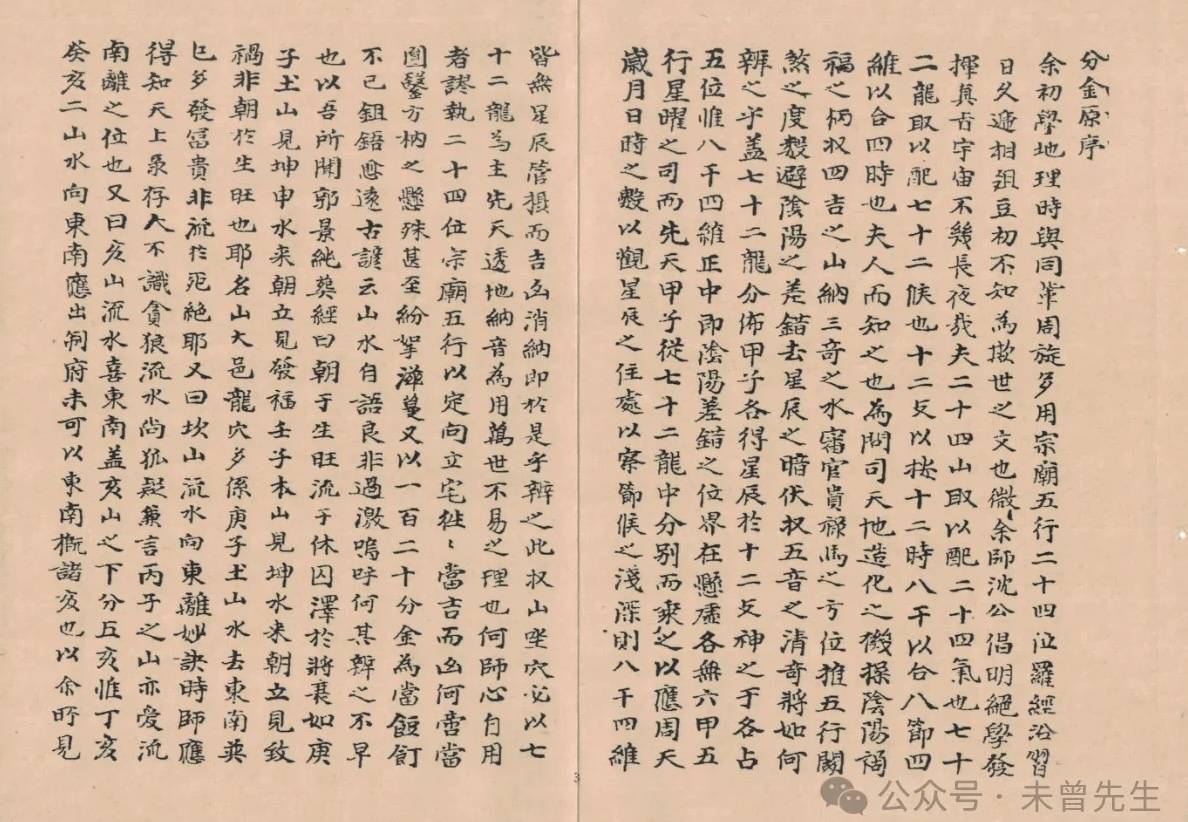 分金原序
余初學地理時與同輩周旋多用宗廟五行二十四位羅經沿習
日久遞相俎豆初不知為欺世之文也微余師沈公倡明絕學發
揮真旨宇宙不幾長夜哉夫二十四山取以配二十四氣也七十
二龍取以配七十二候也十二支以按十二時八干以合八節四
維以合四時也夫人而知之也為問司天地造化之機操陰陽禍
福之柄收四吉之山納三奇之水審官貴祿馬之方位推五行關
煞之度數避陰陽之差錯去星辰之暗伏收五音之清奇將如何
辨之乎蓋七十二龍分佈甲子各得星辰於十二支神之于各占
五位惟八干四維正中即陰陽差錯之位界在懸虛各無六甲五
行星曜之司而先天甲子從七十二龍中分別而乘之以應周天
歲月日時之數以觀星辰之住處以察節候之淺深則八干四維
皆無星辰管攝而吉凶消納即於是乎辨之此收山坐穴必以七
十二龍為主先天透地納音為用萬世不易之理也何師心自用
者謬執二十四位宗廟五行以定向立宅徃〻當吉而凶何啻當
圓鑿方枘之懸殊甚至紛挐又以一百二十分金為當餖飣
不已鉏鋙愈遠古諺云山水自語良非過激嗚呼何其辨之不早
也以吾所聞郭景純葬經曰朝于生旺流于休囚澤於將衰如庚
子土山見坤申水來朝立見發福壬子木山見坤水來朝立見致
禍非朝於生旺也耶名山大邑龍穴多係庚子土山水去東南英
巳多發富貴非流於死絕耶又曰坎山流水向東離妙訣時師應
得知天上象存人不識貪狼流水尚狐疑兼言丙子之山亦愛流
南離之位也又曰亥山流水喜東南蓋亥山之下分五亥惟丁亥
癸亥二山水向東南應出制府未可以東南概諸亥也以余所見
3
公众号·未曾先生